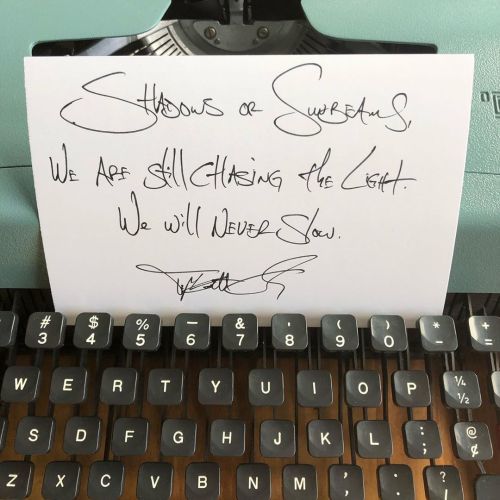 Shadows or Sunbeams,
We Are Still Chasing the Light.
We Will Never Slow.
# $ % – & ' ( ) * +
3 4 5 6 7 8 9 0 - =
W E R T Y U I O P ¼ ½
S D F G H J K L : ; @ ¢
Z X C V B N M , . ? /